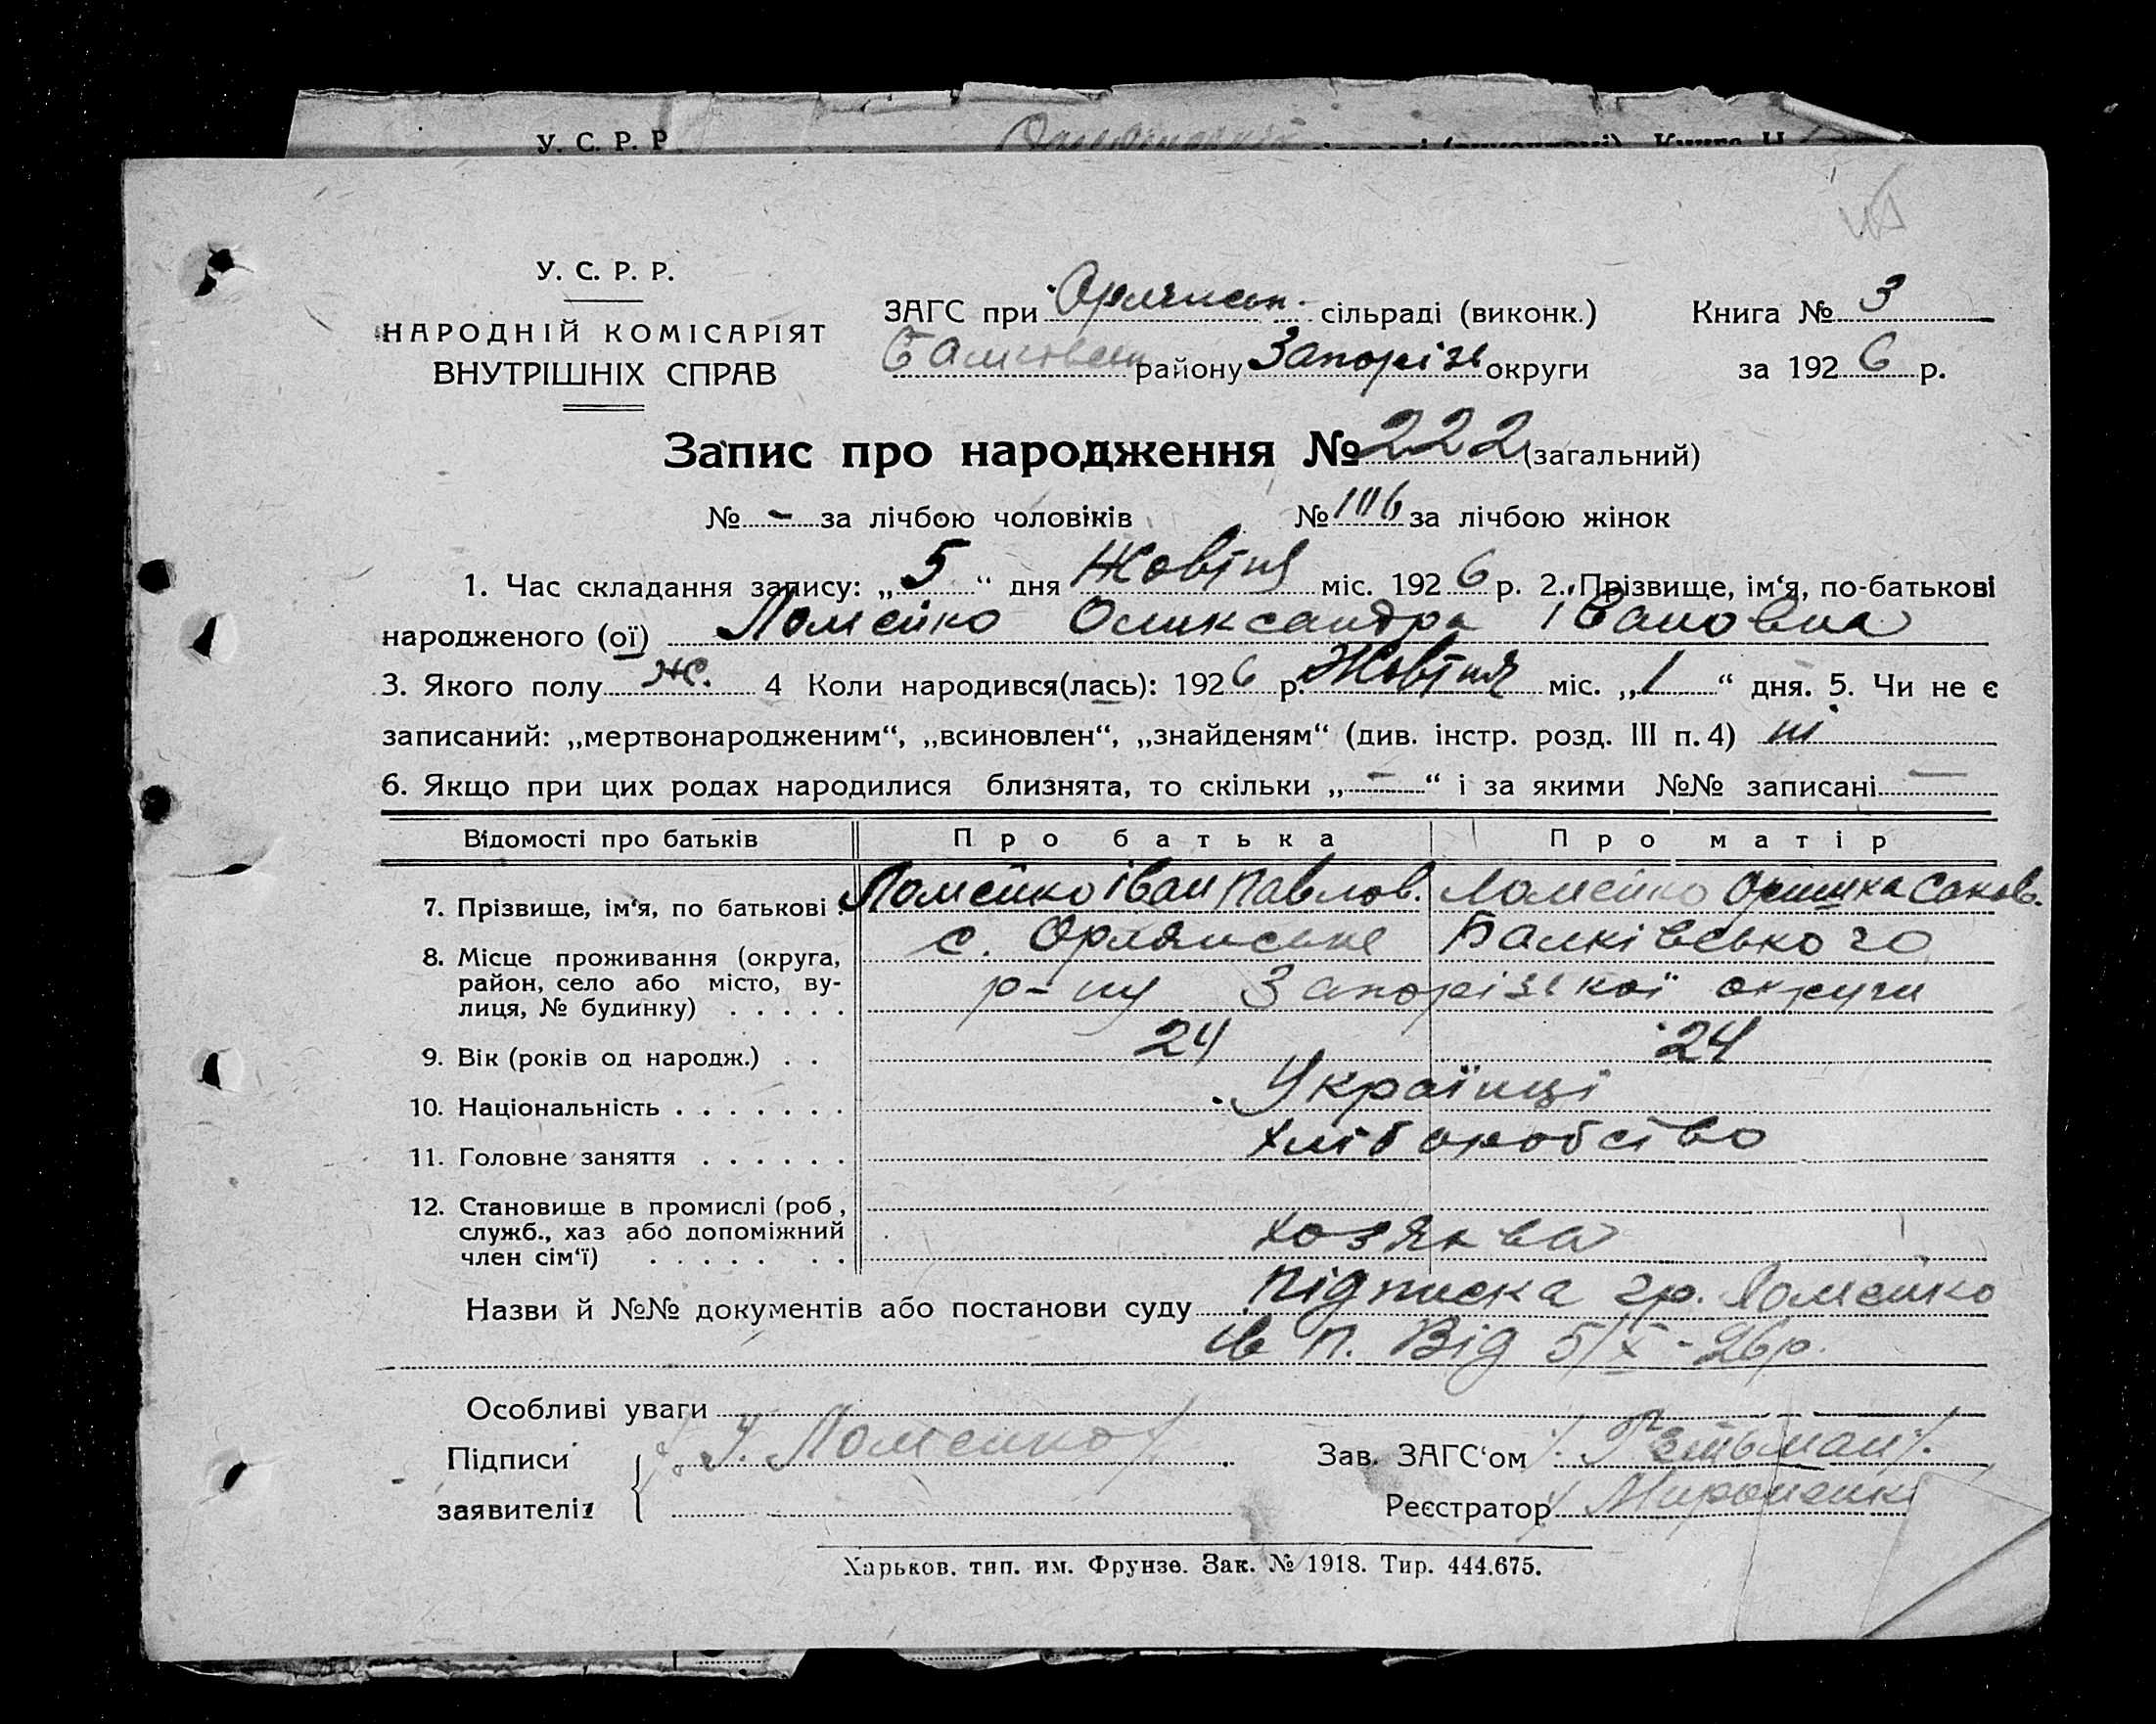 У. С. Р. Р.
У. С. Р. Р.
НАРОДНІЙ КОМІСАРІЯТ
ВНУТРІШНІХ СПРАВ
ЗАГС при Орлянськ. сільраді (виконк.) Книга № 3
району Запорізь округи за 1926 р.
Запис про народження № 222 (загальний)
№ - за лічбою чоловіків № 106 за лічбою жінок
1. Час складання запису: „5“ дня Жовтня міс. 1926 р. 2. Прізвище, ім‘я, по-батькові
народженого (ої) Ломейко Олександра Івановна
3. Якого полу ж. 4 Коли народився(лась): 1926 р. Жовтня міс. „1“ дня. 5. Чи не є
записаний: „мертвонародженим“, „всиновлен“, „знайденям“ (див. інстр. розд. III п. 4) ні
6. Якщо при цих родах народилися близнята, то скільки „—“ і за якими №№ записані —
Відомості про батьків Про батька Про матір
7. Прізвище, ім‘я, по батькові. Ломейко Іван Павлов. Ломейко Оришка
8. Місце проживання (округа, с. Орлянське Балківського
район, село або місто, ву- р-ну Запорізької округи
лиця, № будинку) . . . . .
9. Вік (років од народж.) . . 24 24
10. Національність . . . . . . . Українці
11. Головне заняття . . . . . . хліборобство
12. Становище в промислі (роб,
служб., хаз або допоміжний хозяєва
член сім‘ї) . . . . . . .
Назви й №№ документів або постанови суду підписка гр. Ломейко
Ів п. Від 5/X - 26 р.
Особливі уваги
Підписи І. Ломейко Зав. ЗАГС‘ом Гетьман
заявителів Реєстратор Мироненко
Харьков. тип. им. Фрунзе. Зак. № 1918. Тир. 444.675.